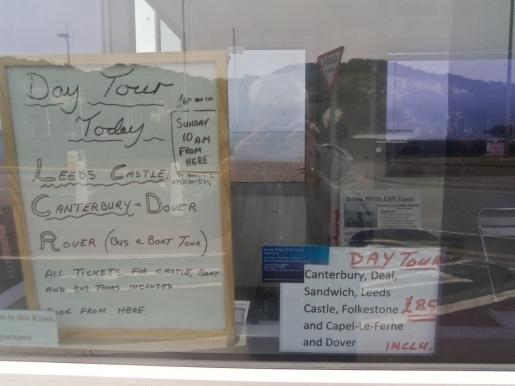 Day Tour
Today
SUNDAY
10 AM
FROM
HERE
LEEDS CASTLE
CANTERBURY & DOVER
ROVER (BUS & BOAT TOUR)
ALL TICKETS FOR CASTLE, BOAT
AND BUS TOURS INCLUDED
BOOK FROM HERE
in this Kiosk
Dover White Cliff Tours
DAY TOUR
Canterbury, Deal,
Sandwich, Leeds
Castle, Folkestone £85
and Capel-Le-Ferne
and Dover INCLU.